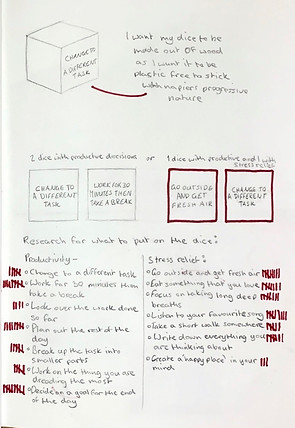 I want my dice to be
made out of wood
as I want it to be
plastic free to stick
with napiers progressive
nature
CHANGE TO
A DIFFERENT
TASK
2 dice with productive decisions or 1 dice with productive and 1 with
stress relief
CHANGE TO
A DIFFERENT
TASK
WORK FOR 30
MINUTES THEN
TAKE A BREAK
GO OUTSIDE
AND GET
FRESH AIR
CHANGE TO
A DIFFERENT
TASK
Research for what to put on the dice:
Productivity -
Change to a different task
Work for 30 minutes then
take a break
Look over the work done
so far
Plan out the rest of the
day
Break up the task into
smaller parts
Work on the thing you are
dreading the most
Decide on a goal for the end
of the day
Stress relief:
Go outside and get fresh air
Eat something that you love
Focus on taking long deep
breaths
Listen to your favourite song
Take a short walk somewhere
Write down everything you
are thinking about
Create a 'happy place' in your
mind